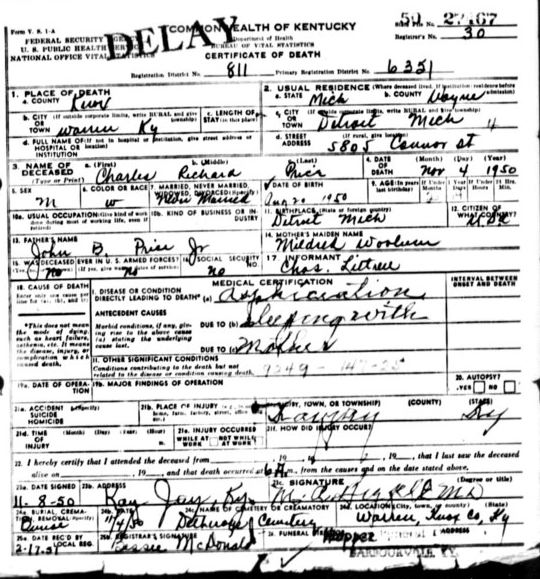 Form V. S. 1-A
FEDERAL SECURITY
U. S. PUBLIC HEALTH
NATIONAL OFFICE VITAL STATISTICS
DELAY
COMMONWEALTH OF KENTUCKY
Department of Health
BUREAU OF VITAL STATISTICS
CERTIFICATE OF DEATH
No. 27467
Registrar's No. 30
Registration District No. 811 Primary Registration District No. 6351
1. PLACE OF DEATH
a. COUNTY Knox
2. USUAL RESIDENCE (Where deceased lived. If institution: residence before admission)
a. STATE Mich b. COUNTY Wayne
b. CITY (If outside corporate limits, write RURAL and give township) OR TOWN Warren Ky
c. LENGTH OF STAY (in this place)
c. CITY (If outside corporate limits, write RURAL and give township) OR TOWN Detroit Mich
d. FULL NAME OF (If not in hospital or institution, give street address or location) HOSPITAL OR INSTITUTION
d. STREET ADDRESS (If rural, give location) 5805 Connor st
3. NAME OF DECEASED (Type or Print)
a. (First) Charles b. (Middle) Richard c. (Last) Price
4. DATE OF DEATH (Month) (Day) (Year) Nov 4 1950
5. SEX M
6. COLOR OR RACE W
7. MARRIED, NEVER MARRIED, WIDOWED, DIVORCED (Specify) Never Married
8. DATE OF BIRTH Aug 20 1950
9. AGE (In years last birthday)
10a. USUAL OCCUPATION (Give kind of work done during most of working life, even if retired)
10b. KIND OF BUSINESS OR INDUSTRY
11. BIRTHPLACE (State or foreign country) Detroit Mich
12. CITIZEN OF WHAT COUNTRY?
13. FATHER'S NAME John B. Price Jr
14. MOTHER'S MAIDEN NAME Mildred Woolum
15. WAS DECEASED EVER IN U.S. ARMED FORCES? No
16. SOCIAL SECURITY NO. no
17. INFORMANT Chas.
18. CAUSE OF DEATH
Enter only one cause per line for (a), (b), and (c)
MEDICAL CERTIFICATION
INTERVAL BETWEEN ONSET AND DEATH
I. DISEASE OR CONDITION DIRECTLY LEADING TO DEATH* (a) Asphiciation
*This does not mean the mode of dying, such as heart failure, asthenia, etc. It means the disease, injury, or complication which caused death.
ANTECEDENT CAUSES
Morbid conditions, if any, giving rise to the above cause (a) stating the underlying cause last.
DUE TO (b) Sleeping with
DUE TO (c) Mother
II. OTHER SIGNIFICANT CONDITIONS
Conditions contributing to the death but not related to the disease or condition causing death.
19a. DATE OF OPERATION
19b. MAJOR FINDINGS OF OPERATION
20. AUTOPSY? YES NO
21a. ACCIDENT SUICIDE HOMICIDE (Specify)
21b. PLACE OF INJURY
(CITY, TOWN, OR TOWNSHIP) (COUNTY) (STATE)
21d. TIME OF INJURY (Month) (Day) (Year) (Hour)
21e. INJURY OCCURRED WHILE AT WORK NOT WHILE AT WORK
21f. HOW DID INJURY OCCUR?
22. I hereby certify that I attended the deceased from , 19 , to , 19 , that I last saw the deceased
alive on , 19 , and that death occurred at 6 A m., from the causes and on the date stated above.
23a. DATE SIGNED 11-8-50
23b. ADDRESS Kay Jay, Ky.
23c. SIGNATURE (Degree or title) MD
24a. BURIAL, CREMATION, REMOVAL (Specify)
11/4/50
24c. NAME OF CEMETERY OR CREMATORY Cemetery
24d. LOCATION (City, town, or county) (State) Warren, Knox Co, Ky
25a. DATE REC'D BY LOCAL REG. 2-17-51
25b. REGISTRAR'S SIGNATURE Bessie McDonald
FUNERAL Hopper
BARBOURVILLE, KY.